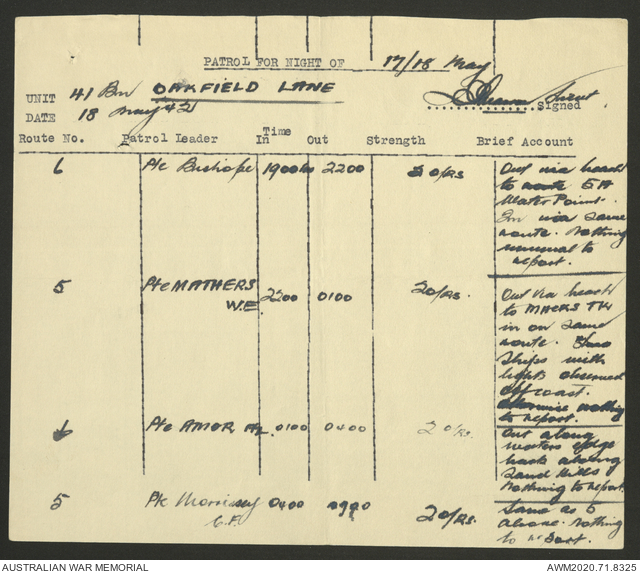 PATROL FOR NIGHT OF 17/18 May
UNIT 41 Bn OAKFIELD LANE
DATE 18 May 42 Signed
Route No. Patrol Leader Time In Out Strength Brief Account
6 Pte 1900 2200 2 O/Rs
Out via beach
to 5A
Water Point.
In via same
route. Nothing
unusual to
report.
5 Pte MATHERS W.E. 2200 0100 2 O/Rs.
Out via beach
to MACKS TK
in on same
route. Two
Ships with
lights observed
off coast.
Otherwise nothing
to report.
6 Pte AMOR 0100 0400 2 O/Rs.
Out along
waters edge
back along
Sand Hills
Nothing to report.
5 Pte Morrissey C.F. 0400 2 O/Rs.
Same as 5
above. Nothing
to report.
AUSTRALIAN WAR MEMORIAL
AWM2020.71.8325